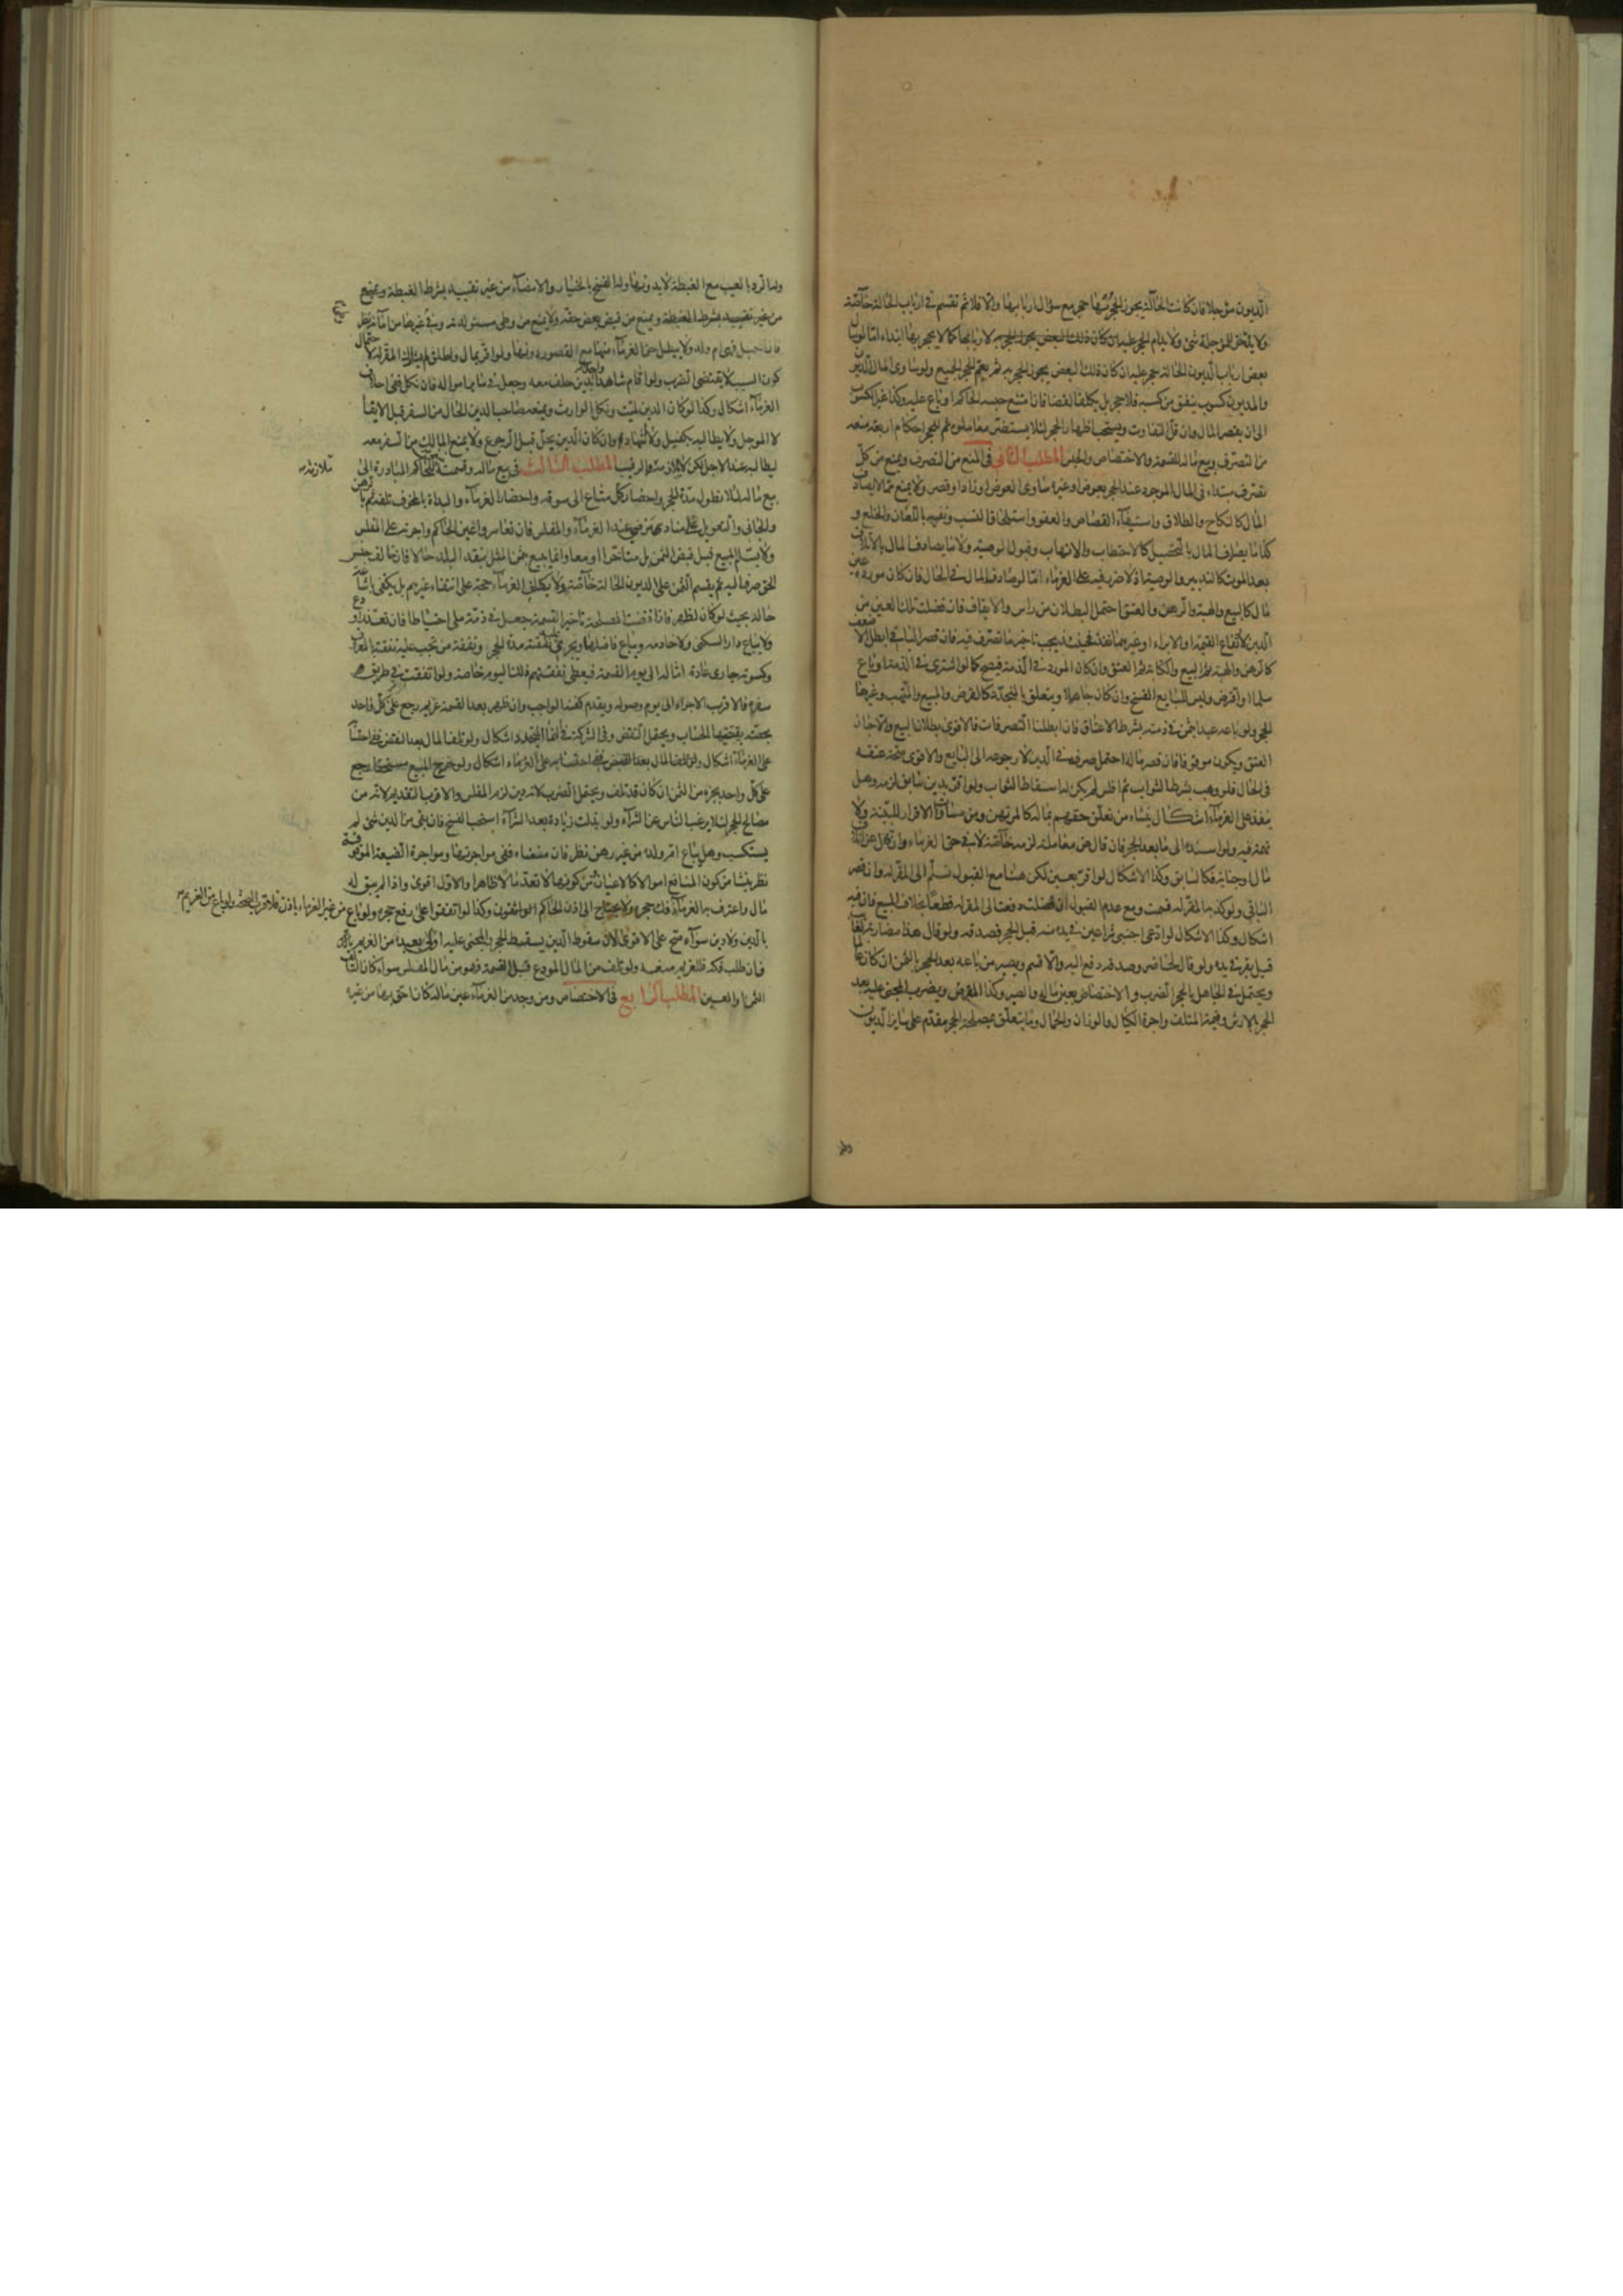 الديون مؤجلا فان كانت الحالة يجوز الحجر بها حجر مع سؤال اربابها والا فلا ثم تقسم في ارباب الحالة خاصة
ولا يدخر للمؤجلة شئ ولا يدام الحجر عليه ان كان ذلك البعض يجوز الحجر به لاربابها كما لا يحجر بها ابتداء اما لو
بعض ارباب الديون الحالة حجر عليه ان كان ذلك البعض يجوز الحجر به ثم يعم الحجر الجميع ولو ساوى المال الديو
والمديون كسوب ينفق من كسبه فلا حجر بل يكلف القضا فان امتنع حبسه الحاكم او باع عليه وكذا غير الكسو
الى ان يقصر المال وان قل التفاوت ويستحب اظهار الحجر لئلا يستضر معاملوه ثم للحجر احكام اربعة منعه
من التصرف وبيع ماله للقسمة والاختصاص والحبس المطلب الثاني في المنع من التصرف ويمنع من كل
تصرف مبتداء في المال الموجود عند الحجر بعوض او غيره ساوى العوض او زاد او قصر ولا يمنع مما لا يصادف
المال كالنكاح والطلاق واستيفاء القصاص والعفو واستلحاق النسب ونفيه باللعان والخلع و
كذا ما يصادف المال بالتحصيل كالاحتطاب والاتهاب وقبول الوصية ولا ما يصادف المال بالاتلاف
بعد الموت كالتدبير والوصية اذ لا ضرر فيه على الغرماء اما لو صادف المال في الحال فان كان مورده عين
مال كالبيع والهبة والرهن والعتق احتمل البطلان من راس والايقاف فان فضلت تلك العين من
الدين لارتفاع القيمة او الابراء او غيرهما نفذ فحينئذ يجب تاخير ما تصرف فيه فان قصر الباقي ابطل الاضعف
كالرهن والهبة ثم البيع والكتابة ثم العتق وان كان المورد في الذمة فيصح كما لو اشترى في الذمة او باع
سلما او اقترض وليس للبايع الفسخ وان كان جاهلا ويتعلق بالمتجددة كالقرض والمبيع والمتهب وغيرها
الحجر ولو باعه عبدا بثمن في ذمته بشرط الاعتاق فان ابطلنا التصرفات فالاقوى بطلان البيع والا جاز
العتق ويكون موقوفا فان قصر ماله احتمل صرفه في الدين لا رجوعه الى البايع والاقوى صحة عتقه
في الحال فلو وهب بشرط الثواب ثم افلس لم يكن له اسقاط الثواب ولو اقر بدين سابق لزمه وهل
ينفذ على الغرماء اشكال ينشاء من تعلق حقهم بماله كالمرتهن ومن مساواة الاقرار للبينة ولا
تهمة فيه ولو اسنده الى ما بعد الحجر فان قال عن معاملة لزمه خاصة لا في حق الغرماء وان قال عن اتلاف
مال او جناية فكالسابق وكذا الاشكال لو اقر بعين لكن هنا مع القبول تسلم الى المقر له وان قصر
الباقي ولو كذبه المقر له قسمت ومع عدم القبول ان فضلت دفعت الى المقر له قطعا بخلاف المبيع فان فيه
اشكال وكذا الاشكال لو ادعى اجنبي شراء عين في يده منه قبل الحجر فصدقه ولو قال هذا مضاربة لغائب
قيل يقر في يده ولو قال لحاضر وصدقه دفع اليه والا قسم ويصبر من باعه بعد الحجر بالثمن ان كان عالما
ويحتمل في الجاهل بالحجر الضرب والاختصاص بعين ماله والصبر وكذا المقرض ويضرب المجنى عليه بعد
الحجر بالارش وقيمة المتلف واجرة الكيال والوزان والحمال وما يتعلق بمصلحة الحجر مقدم على ساير الديون
وله الرد بالعيب مع الغبطة لا بدونها وله الفسخ بالخيار والامضاء من غير تقييد بشرط الغبطة ويمنع
من غير تقييد بشرط الغبطة ويمنع من قبض بعض حقه ولا يمنع من وطى مستولدته وفي غيرها من امائه نظر
فان احبل فهي ام ولد ولا يبطل حق الغرماء منها مع القصور دونها ولو اقر بمال واطلق لم يشارك المقر له لاحتمال
كون السبب لا يقتضى الضرب ولو اقام شاهدا واحدا بدين حلف معه وجعل في ساير امواله فان نكل ففي احلاف
الغرماء اشكال وكذا لو كان الدين لميت ونكل الوارث ويمنعه صاحب الدين الحال من السفر قبل الايفا
لا المؤجل ولا يطالبه بكفيل ولا اشهاد وان كان الدين يحل قبل الرجوع ولا يمنع المالك من السفر معه
ليطالبه عند الاجل لكن لا يلازمه ملازمة الرقيب المطلب الثالث في بيع ماله وقسمته ينبغي للحاكم المبادرة الى
بيع ماله لئلا تطول مدة الحجر واحضار كل متاع الى سوقه واحضار الغرماء والبداة بالمخوف تلفه ثم بالرهن
والجاني والتعويل على مناد يرتضى عند الغرماء والمفلس فان تعاسروا عين الحاكم واجرته على المفلس
ولا يسلم المبيع قبل قبض الثمن بل متاخرا او معا وانما يبيع بثمن المثل بنقد البلد حالا فان خالف جنس
الحق صرفه اليه ثم يقسم الثمن على الديون الحالة خاصة ولا يكلف الغرماء حجة على انتفاء غيرهم بل يكتفى باشاعة
حاله بحيث لو كان لظهر فاذا اقتضت المصلحة تاخير القسمة جعل في ذمة ملى احتياطا فان تعذر اودع
ولا يباع دار السكنى ولا خادمه ويباع فاضلهما ويجرى عليه نفقته مدة الحجر ونفقة من تجب عليه نفقته بالمعروف
وكسوته جارى عادة امثاله الى يوم القسمة فيعطى نفقتهم ذلك اليوم خاصة ولو اتفقت في طريق
سفره فالاقرب الاجراء الى يوم وصوله ويقدم كفنه الواجب وان ظهر بعد القسمة غريم رجع على كل واحد
بحصته يقتضيها الحساب ويحتمل النقض وفي الشركة في النماء المتجدد اشكال ولو تلف المال بعد النقض ففي احتسابه
على الغرماء اشكال ولو تلف المال بعد القبض ففي احتسابه على الغرماء اشكال ولو خرج المبيع مستحقا رجع
على كل واحد بجزء من الثمن ان كان قد تلف ويحتمل الضرب لانه دين لزم المفلس والاقرب التقديم لانه من
مصالح الحجر لئلا يرغب الناس عن الشراء ولو بذلت زيادة بعد الشراء استحب الفسخ فان بقى من الدين شئ لم
يستكسب وهل يباع ام ولده من غير رهن نظر فان منعناه ففي مواجرتها ومواجرة الضيعة الموقوفة
نظر ينشا من كون المنافع اموالا كالاعيان ومن كونها لا تعد مالا ظاهرا والاول اقوى واذا لم يبق له
مال واعترف به الغرماء فك حجره ولا يحتاج الى اذن الحاكم الواثقون وكذا لو اتفقوا على رفع حجره ولو باع من غير الغرماء باذنهم فالاقرب الصحة ولو باع من الغريم
بالدين ولا دين سواه صح على الاقوى لان سقوط الدين يسقط الحجر والمجنى عليه اولى بعبده من الغريم
فان طلب فكه فللغريم منعه ولو تلف من المال المودع قبل القسمة فهو من مال المفلس سواء كان التالف
الثمن او العين المطلب الرابع في الاختصاص ومن وجد من الغرماء عين ماله كان احق بها من غيره